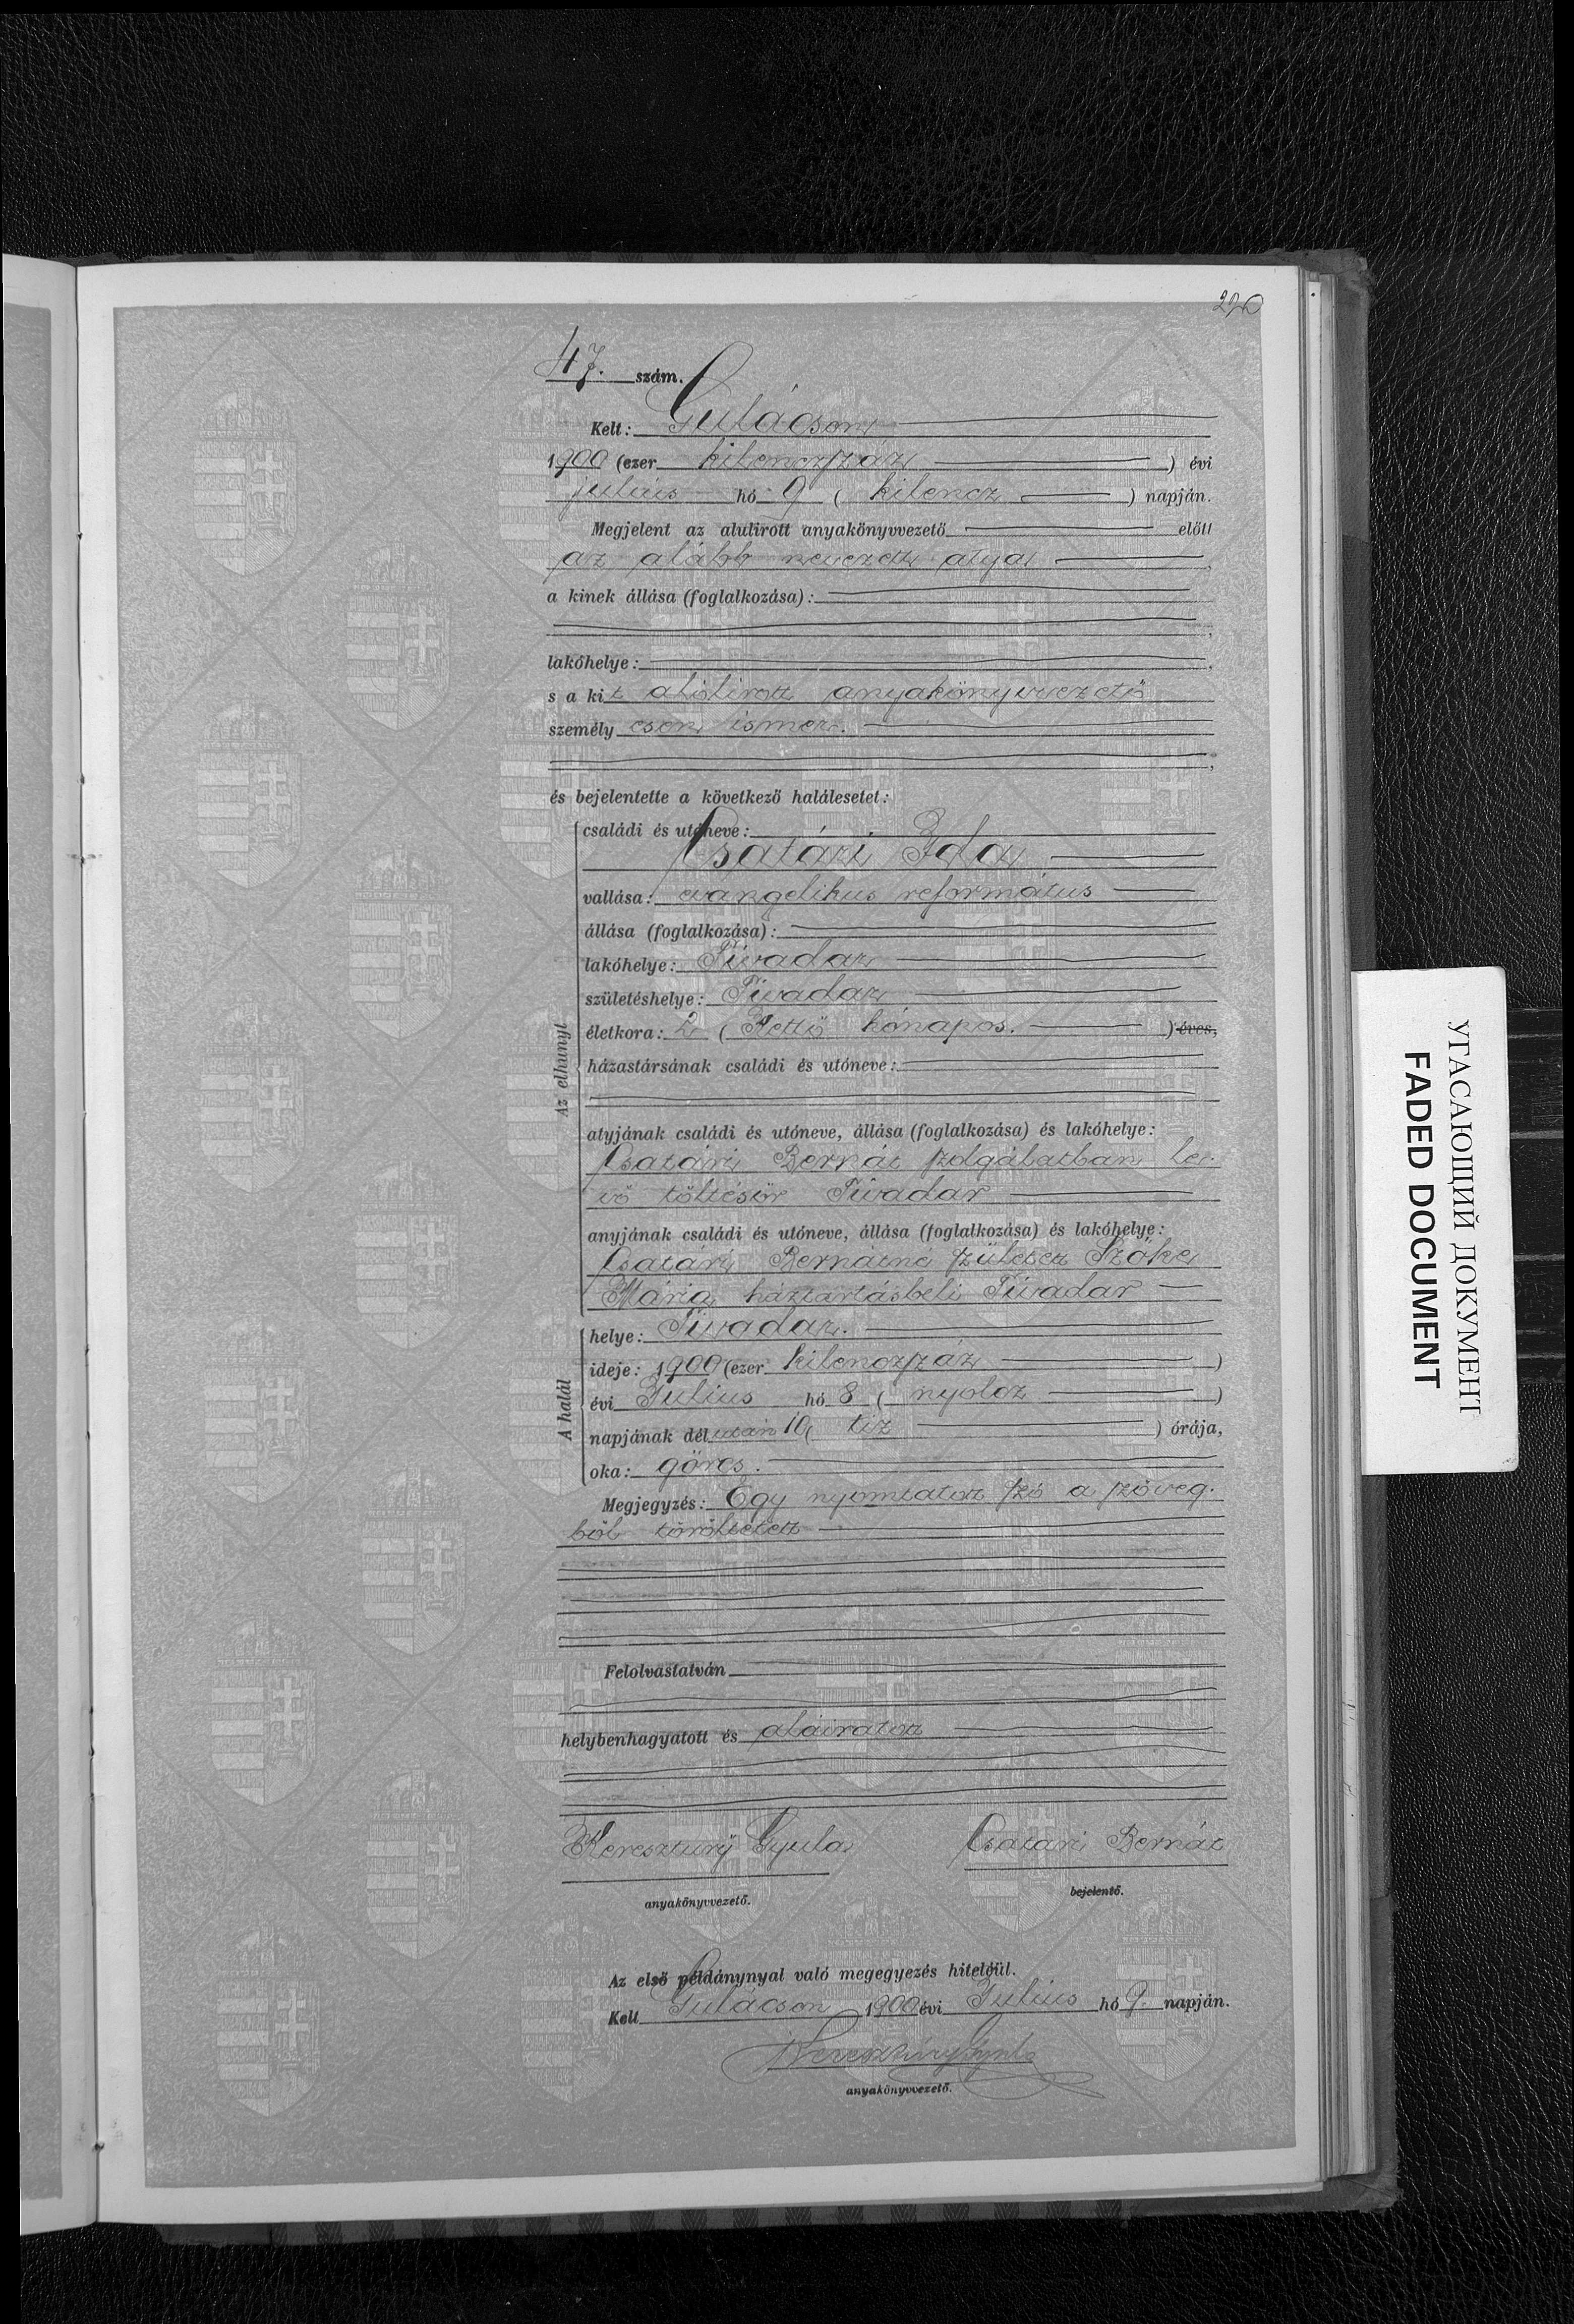 47. szám.
Kelt: Gulácson
1900 (ezer kilenczszáz ) évi
julius hó 9 ( kilencz ) napján.
Megjelent az alulirott anyakönyvvezető előtt
az alább nevezett atya ,
a kinek állása (foglalkozása):
,
lakóhelye: ,
s a kit alólirott anyakönyvvezető
személyesen ismer.
,
és bejelentette a következő halálesetet:
Az elhunyt
családi és utóneve:
Csatári Ida
vallása: evangelikus református
állása (foglalkozása):
lakóhelye: Tivadar
születéshelye: Tivadar
életkora: 2 ( Kettő hónapos. ) éves,
házastársának családi és utóneve:
atyjának családi és utóneve, állása (foglalkozása) és lakóhelye:
Csatári Bernát szolgálatban le-
vő töltésőr Tivadar
anyjának családi és utóneve, állása (foglalkozása) és lakóhelye:
Csatári Bernátné született Szőke
Mária háztartásbeli Tivadar
A halál
helye: Tivadar.
ideje: 1900 (ezer kilenczszáz )
évi Julius hó 8 ( nyolcz )
napjának délután 10 ( tiz ) órája,
oka: görcs.
Megjegyzés: Egy nyomtatott szó a szöveg-
ből töröltetett
Felolvastatván
helybenhagyatott és aláiratott
Kereszturÿ Gyula Csatári Bernát
anyakönyvvezető. bejelentő.
Az első példánynyal való megegyezés hiteléül.
Kelt Gulácson 1900 évi Julius hó 9. napján.
Kereszturÿ Gyula
anyakönyvvezető.
УГАСАЮЩИЙ ДОКУМЕНТ
FADED DOCUMENT